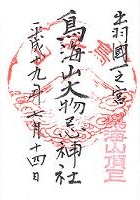 出羽國一之宮
鳥海山頂
鳥海山大物忌神社
平成十九年七月十四日